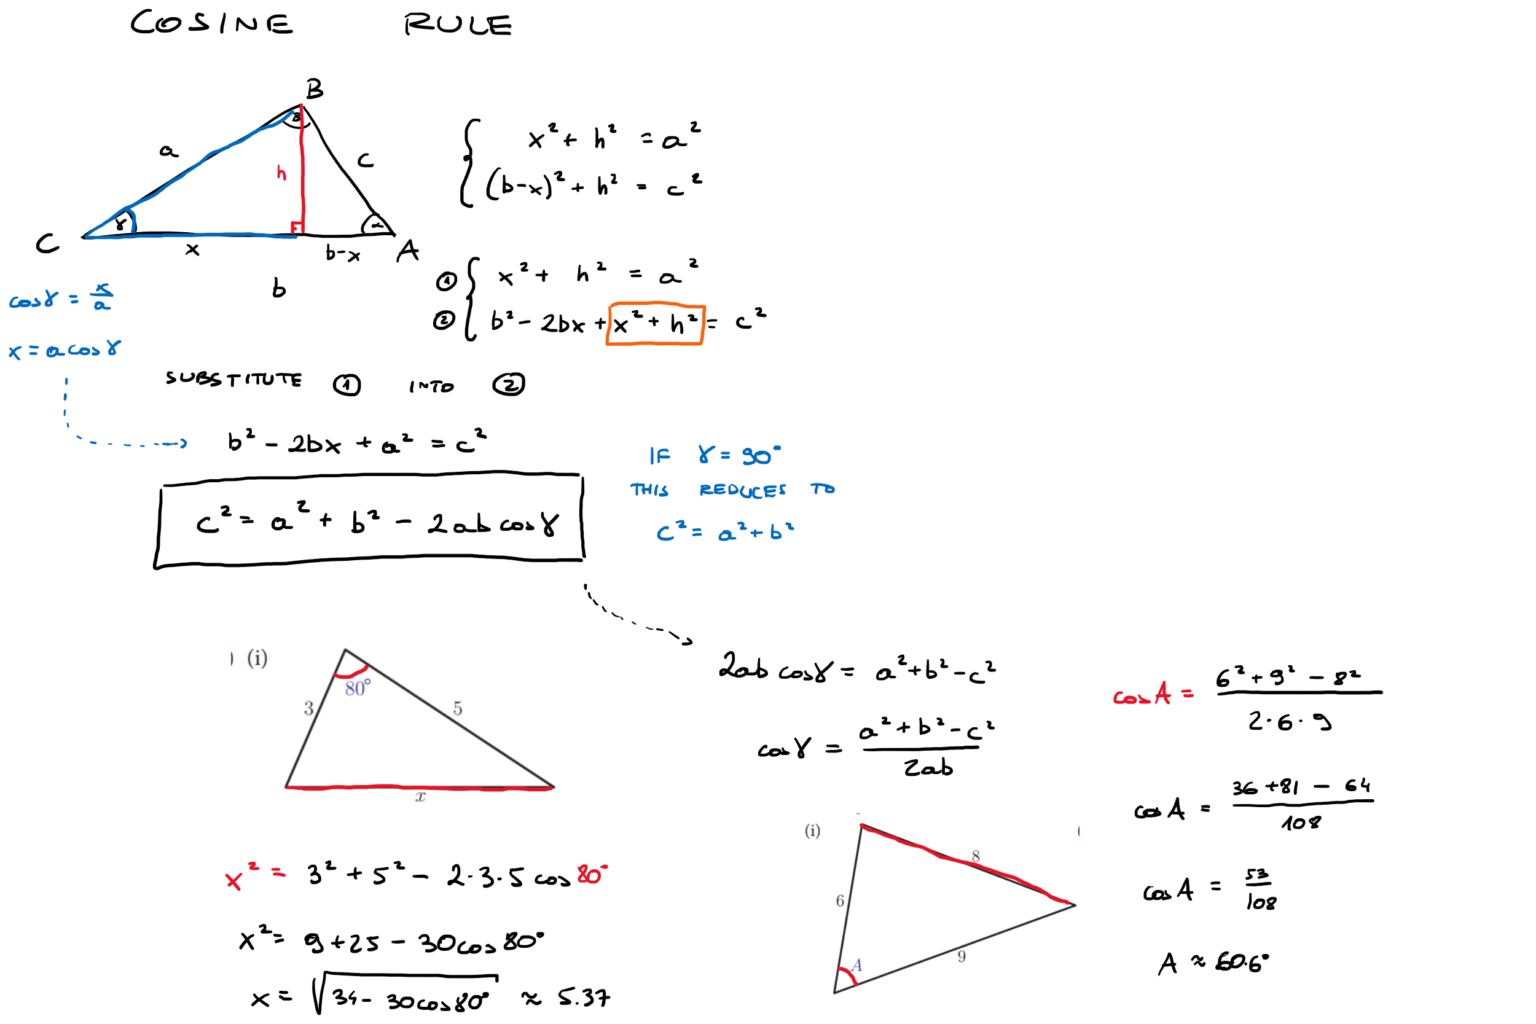 COSINE RULE
B
β
a
c
h
γ
α
C
x
b-x
A
b
x² + h² = a²
(b-x)² + h² = c²
cosγ = x/a
x = a cosγ
① x² + h² = a²
② b² - 2bx + x² + h² = c²
SUBSTITUTE ① INTO ②
b² - 2bx + a² = c²
c² = a² + b² - 2ab cosγ
IF γ = 90°
THIS REDUCES TO
c² = a² + b²
) (i)
80°
3
5
x
x² = 3² + 5² - 2·3·5 cos 80°
x² = 9 + 25 - 30cos 80°
x = √(34 - 30cos80°) ≈ 5.37
2ab cosγ = a² + b² - c²
cosγ = (a² + b² - c²)/2ab
(i)
8
6
A
9
cosA = (6² + 9² - 8²)/(2·6·9)
cosA = (36 + 81 - 64)/108
cosA = 53/108
A ≈ 60.6°